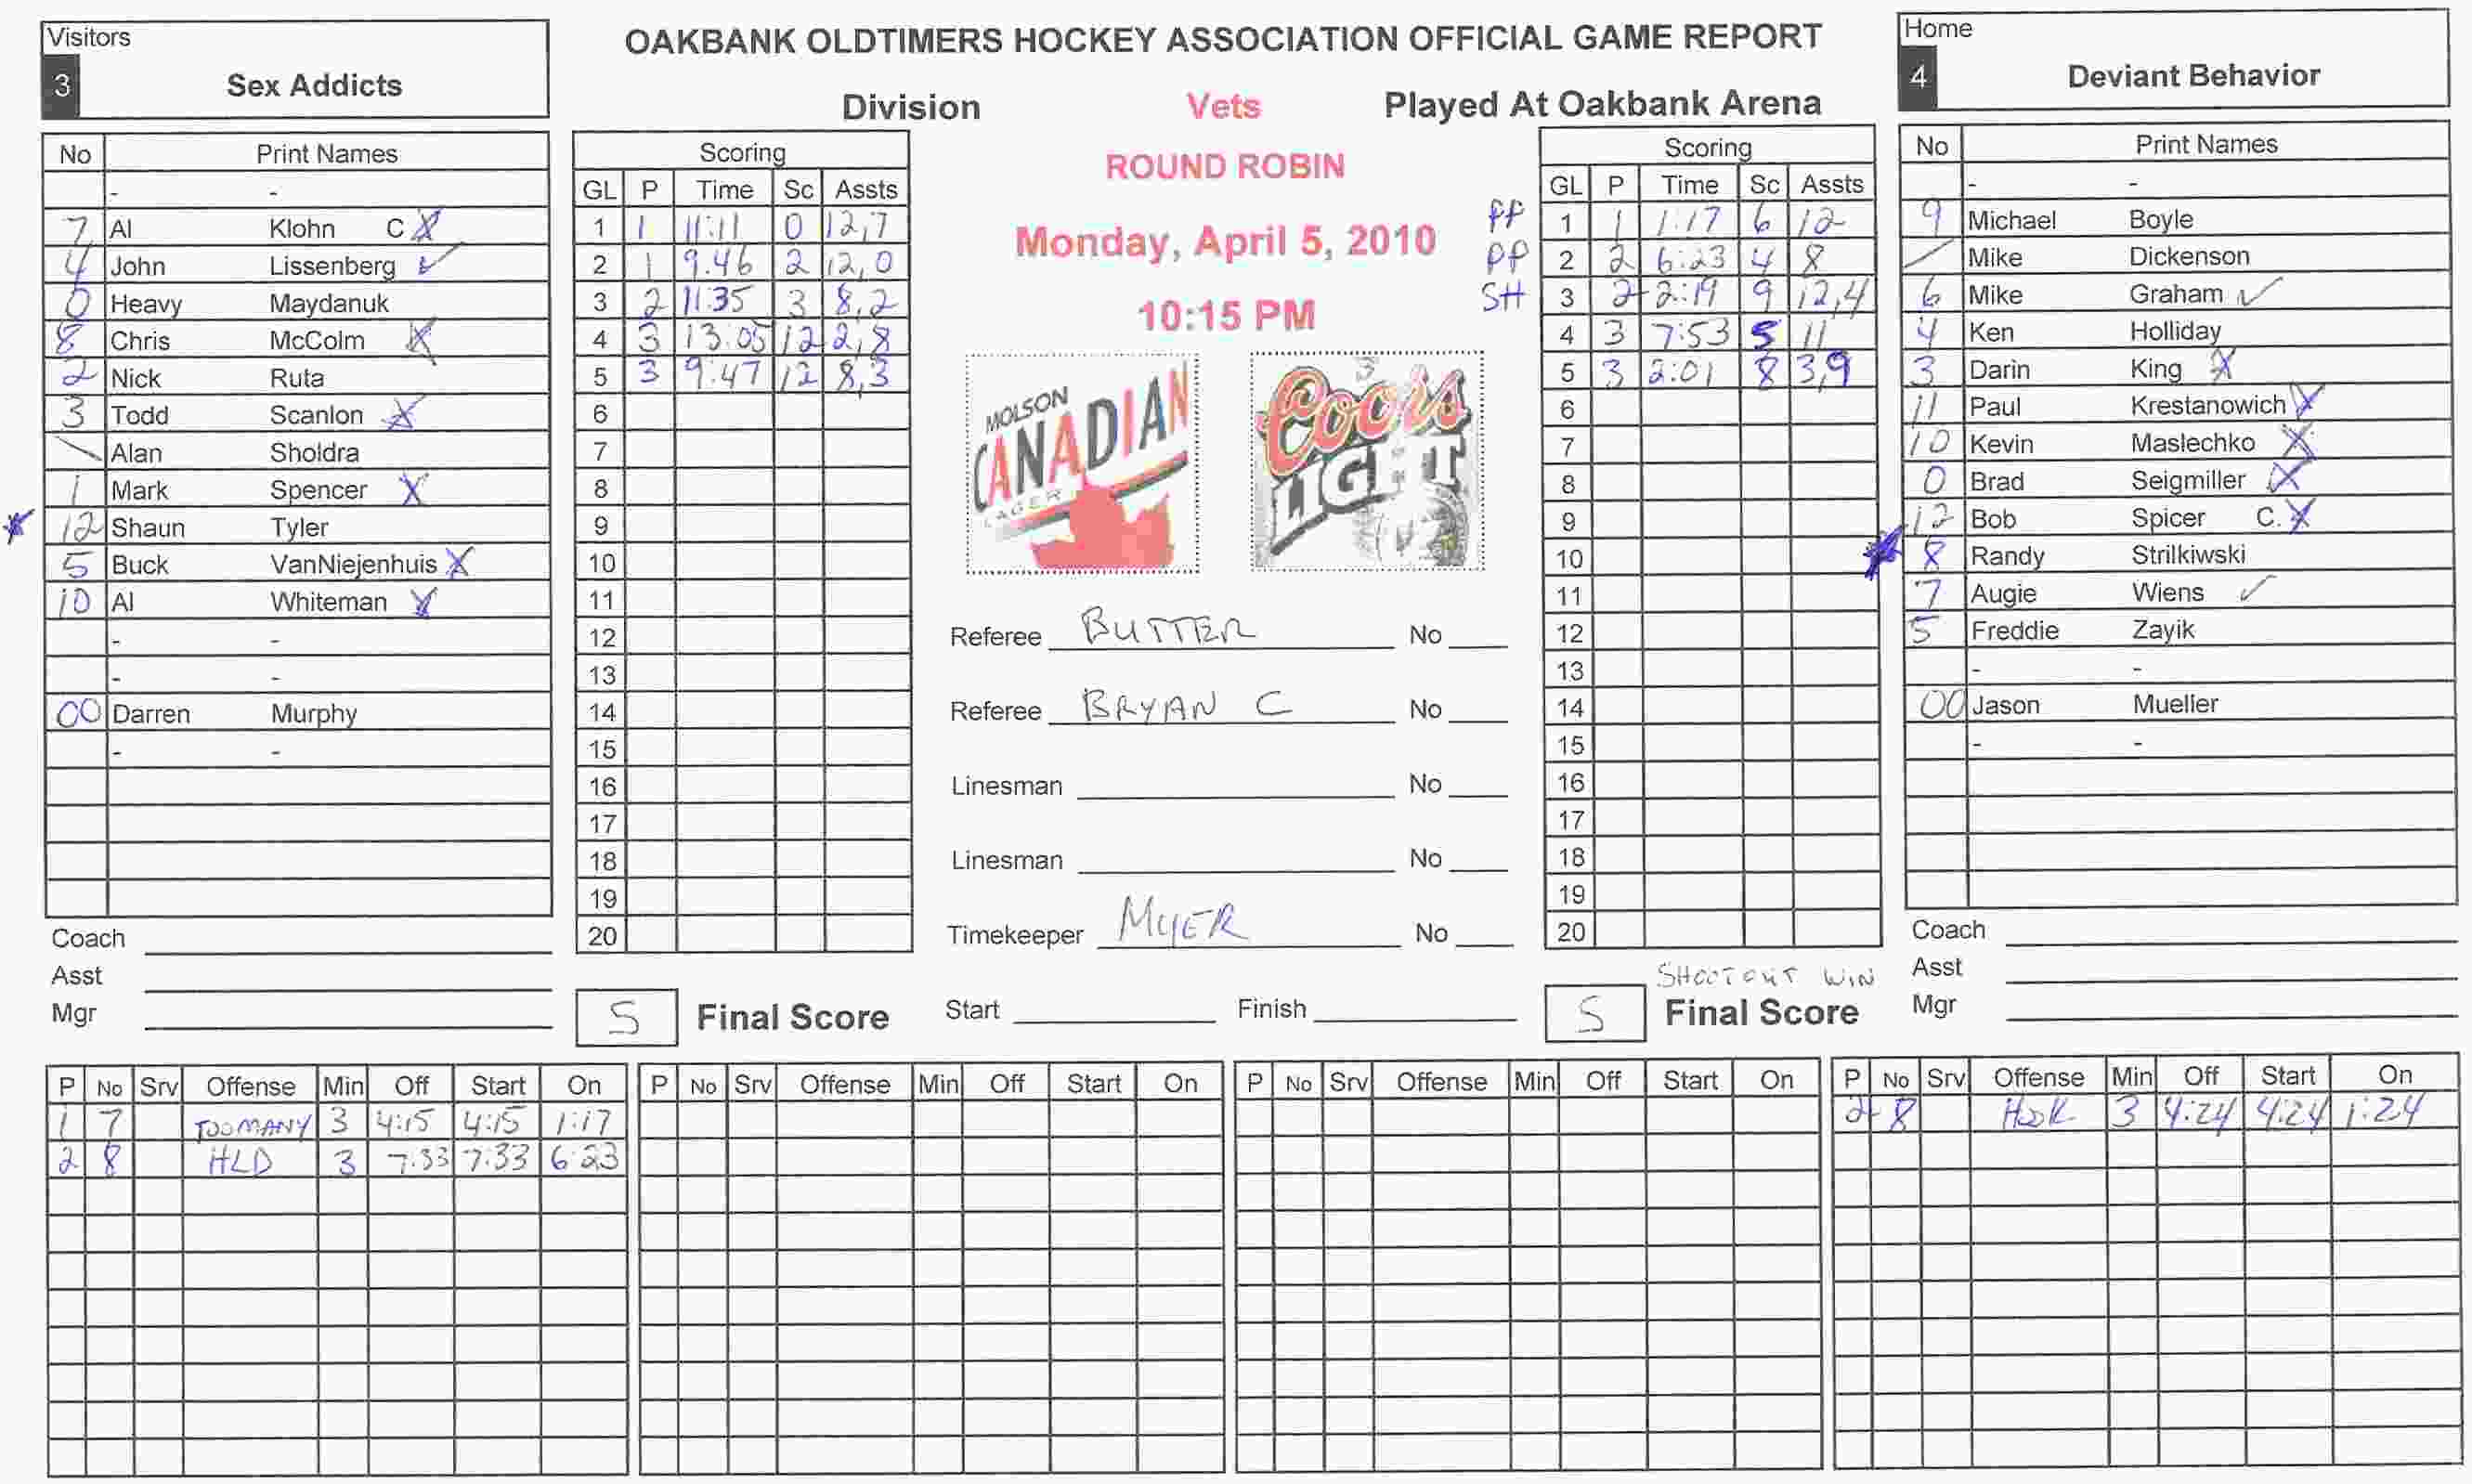 Visitors
3 Sex Addicts
OAKBANK OLDTIMERS HOCKEY ASSOCIATION OFFICIAL GAME REPORT
Home
4 Deviant Behavior
Division Vets Played At Oakbank Arena
ROUND ROBIN
Monday, April 5, 2010
10:15 PM
No Print Names
- -
7 Al Klohn C X
4 John Lissenberg ✓
0 Heavy Maydanuk
8 Chris McColm X
2 Nick Ruta
3 Todd Scanlon X
\ Alan Sholdra
1 Mark Spencer X
* 12 Shaun Tyler
5 Buck VanNiejenhuis X
10 Al Whiteman X
- -
- -
00 Darren Murphy
- -
Coach
Asst
Mgr
Scoring
GL P Time Sc Assts
1 1 11:11 0 12,7
2 1 9.46 2 12,0
3 2 11:35 3 8,2
4 3 13:05 12 2,8
5 3 9:47 12 8,3
6
7
8
9
10
11
12
13
14
15
16
17
18
19
20
5 Final Score
MOLSON
CANADIAN
LAGER
Coors
LIGHT
Referee BUTTER No
Referee BRYAN C No
Linesman No
Linesman No
Timekeeper MYER No
Start Finish
Scoring
GL P Time Sc Assts
PP 1 1 1:17 6 12
PP 2 2 6:23 4 8
SH 3 2 2:19 9 12,4
4 3 7:53 5 11
5 3 2:01 8 3,9
6
7
8
9
10
11
12
13
14
15
16
17
18
19
20
SHOOTOUT WIN
5 Final Score
No Print Names
- -
9 Michael Boyle
/ Mike Dickenson
6 Mike Graham ✓
4 Ken Holliday
3 Darin King X
11 Paul Krestanowich X
10 Kevin Maslechko X
0 Brad Seigmiller X
12 Bob Spicer C. X
* 8 Randy Strilkiwski
7 Augie Wiens ✓
5 Freddie Zayik
- -
00 Jason Mueller
- -
Coach
Asst
Mgr
P No Srv Offense Min Off Start On
1 7 TOO MANY 3 4:15 4:15 1:17
2 8 HLD 3 7:33 7:33 6:23
P No Srv Offense Min Off Start On
P No Srv Offense Min Off Start On
P No Srv Offense Min Off Start On
2 8 HOOK 3 4:24 4:24 1:24